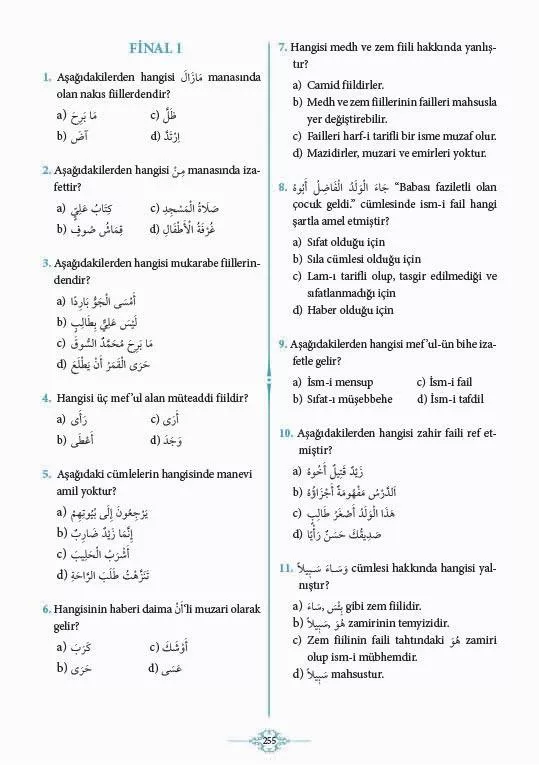 FİNAL 1
1. Aşağıdakilerden hangisi مَازَالَ manasında
olan nakıs fiillerdendir?
a) مَا بَرِحَ c) ظَلَّ
b) آضَ d) اِرْتَدَّ
2. Aşağıdakilerden hangisi مِنْ manasında iza-
fettir?
a) كِتَابُ عَلِيٍّ c) صَلَاةُ الْمَسْجِدِ
b) قِمَاشُ صُوفٍ d) غُرْفَةُ الْأَطْفَالِ
3. Aşağıdakilerden hangisi mukarabe fiillerin-
dendir?
a) أَمْسَى الْجَوُّ بَارِدًا
b) لَيْسَ عَلِيٌّ بِطَالِبٍ
c) مَا بَرِحَ مُحَمَّدٌ السُّوقَ
d) حَرَى الْقَمَرُ أَنْ يَطْلَعَ
4. Hangisi üç mef'ul alan müteaddi fiildir?
a) رَأَى c) أَرَى
b) أَعْطَى d) وَجَدَ
5. Aşağıdaki cümlelerin hangisinde manevi
amil yoktur?
a) يَرْجِعُونَ إِلَى بُيُوتِهِمْ
b) إِنَّمَا زَيْدٌ ضَارِبٌ
c) أَشْرَبُ الْحَلِيبَ
d) تَنَزَّهْتُ طَلَبَ الرَّاحَةِ
6. Hangisinin haberi daima أَنْ'li muzari olarak
gelir?
a) كَرَبَ c) أَوْشَكَ
b) حَرَى d) عَسَى
7. Hangisi medh ve zem fiili hakkında yanlış-
tır?
a) Camid fiildirler.
b) Medh ve zem fiillerinin failleri mahsusla
yer değiştirebilir.
c) Failleri harf-i tarifli bir isme muzaf olur.
d) Mazidirler, muzari ve emirleri yoktur.
8. جَاءَ الْوَلَدُ الْفَاضِلُ أَبُوهُ “Babası faziletli olan
çocuk geldi.” cümlesinde ism-i fail hangi
şartla amel etmiştir?
a) Sıfat olduğu için
b) Sıla cümlesi olduğu için
c) Lam-ı tarifli olup, tasgir edilmediği ve
sıfatlanmadığı için
d) Haber olduğu için
9. Aşağıdakilerden hangisi mef'ul-ün bihe iza-
fetle gelir?
a) İsm-i mensup c) İsm-i fail
b) Sıfat-ı müşebbehe d) İsm-i tafdil
10. Aşağıdakilerden hangisi zahir faili ref et-
miştir?
a) زَيْدٌ قَتِيلٌ أَخُوهُ
b) اَلدَّرْسُ مَفْهُومَةٌ أَجْزَاؤُهُ
c) هَذَا الْوَلَدُ أَصْغَرُ طَالِبٍ
d) صَدِيقُكَ حَسَنٌ رَأْيًا
11. وَسَاءَ سَبِيلاً cümlesi hakkında hangisi yal-
nıştır?
a) سَاءَ, بِئْسَ gibi zem fiilidir.
b) سَبِيلاً, هُوَ zamirinin temyizidir.
c) Zem fiilinin faili tahtındaki هُوَ zamiri
olup ism-i mübhemdir.
d) سَبِيلاً mahsustur.
255